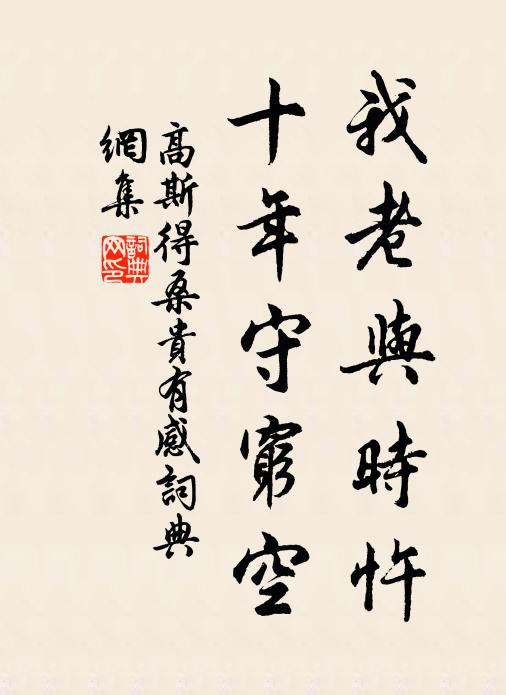 我老與時忤
十年守窮空
高斯得桑貴有感詞典
網集
詞典
网印